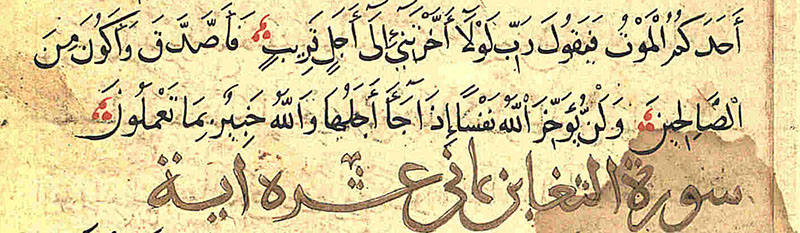 أَحَدَكُمُ الْمَوْتُ فَيَقُولَ رَبِّ لَوْلَا أَخَّرْتَنِي إِلَى أَجَلٍ قَرِيبٍ فَأَصَّدَّقَ وَأَكُونَ مِنَ
الصَّالِحِينَ وَلَنْ يُؤَخِّرَ اللَّهُ نَفْسًا إِذَا جَآءَ أَجَلُهَا وَاللَّهُ خَبِيرٌ بِمَا تَعْمَلُونَ
سورة التغابن ثماني عشره اية